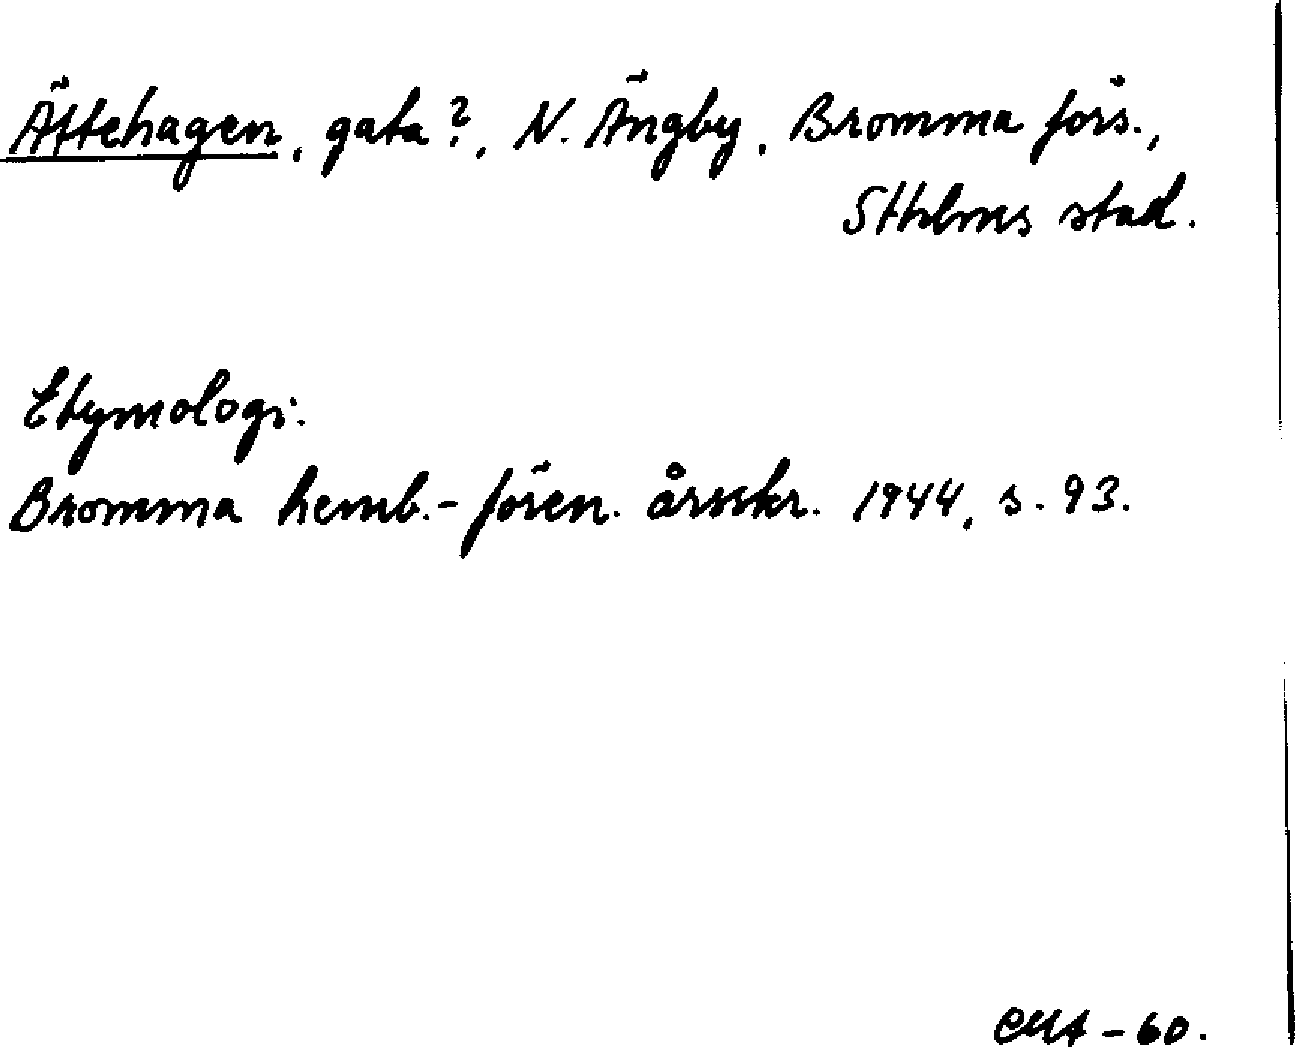 Ättehagen, gata?, N. Ängby, Bromma förs.,
Sthlms stad.
Etymologi.
Bromma hemb.-fören. årsskr. 1944, s. 93.
-60.